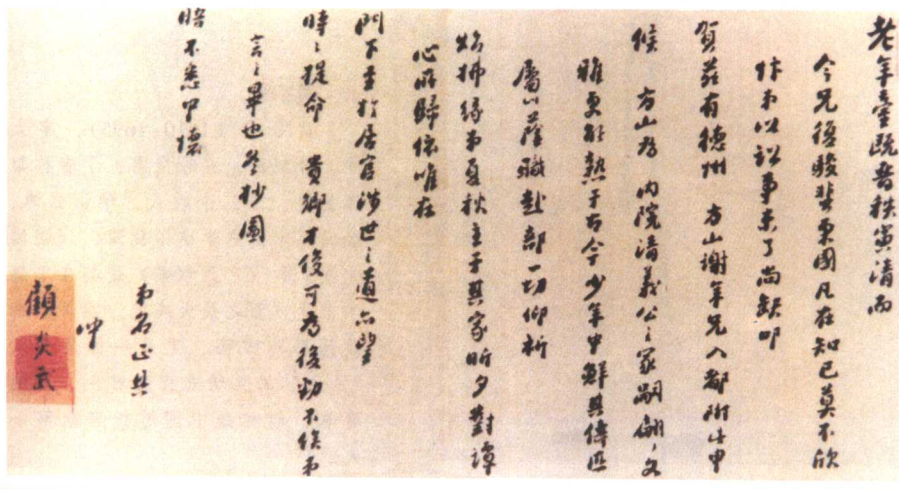 老年臺既晉秩寅清而
令兄復駿蜚東國凡在知己莫不欣
忭弟以訟事未了尚缺叩
賀茲有德州 方山謝年兄入都附此申
候 方山為 內院清義公之家嗣翩々文
雅更能熟于古今少年中鮮其儔匹
屬以蔭職赴部一切仰祈
炤拂緣弟夏秋主于其家昕夕對譚
心所歸依唯在
門下至於居官涉世之道亦望
時時提命 貴鄉才俊可為後勁不俟弟
言之畢也冬杪圖
晤不悉甲讀
弟名正具
冲
顧炎武